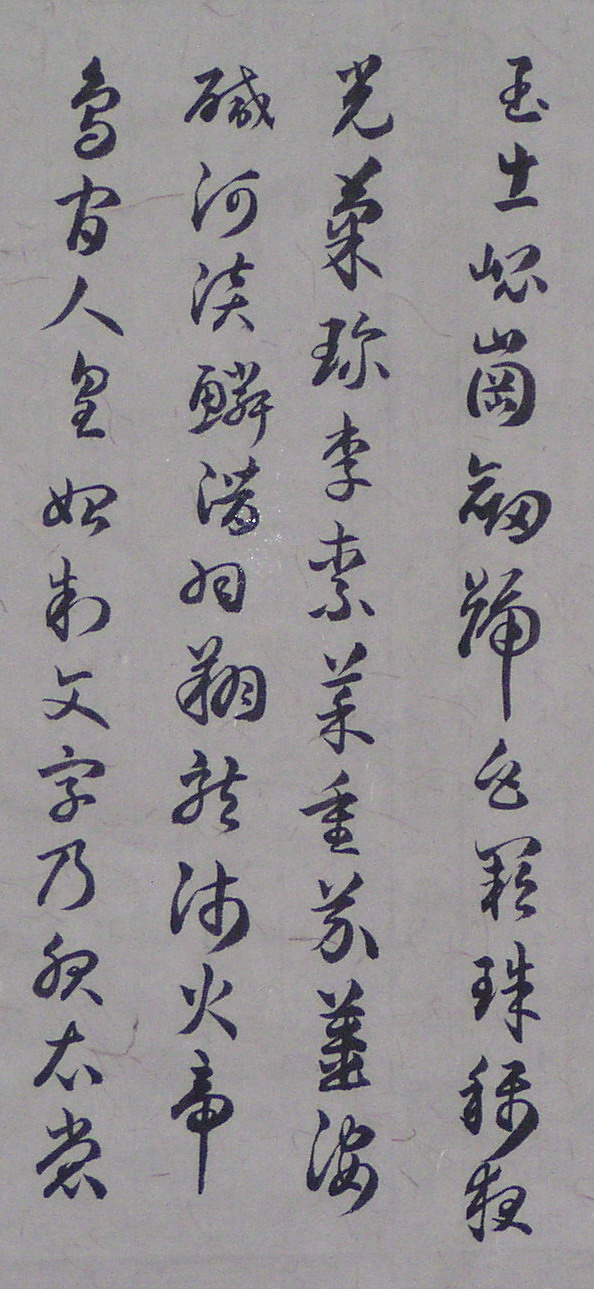 玉出崐崗劍號巨闕珠稱夜
光菓珍李柰菜重芥薑海
鹹河淡鱗潛羽翔龍師火帝
鳥官人皇始制文字乃服衣裳